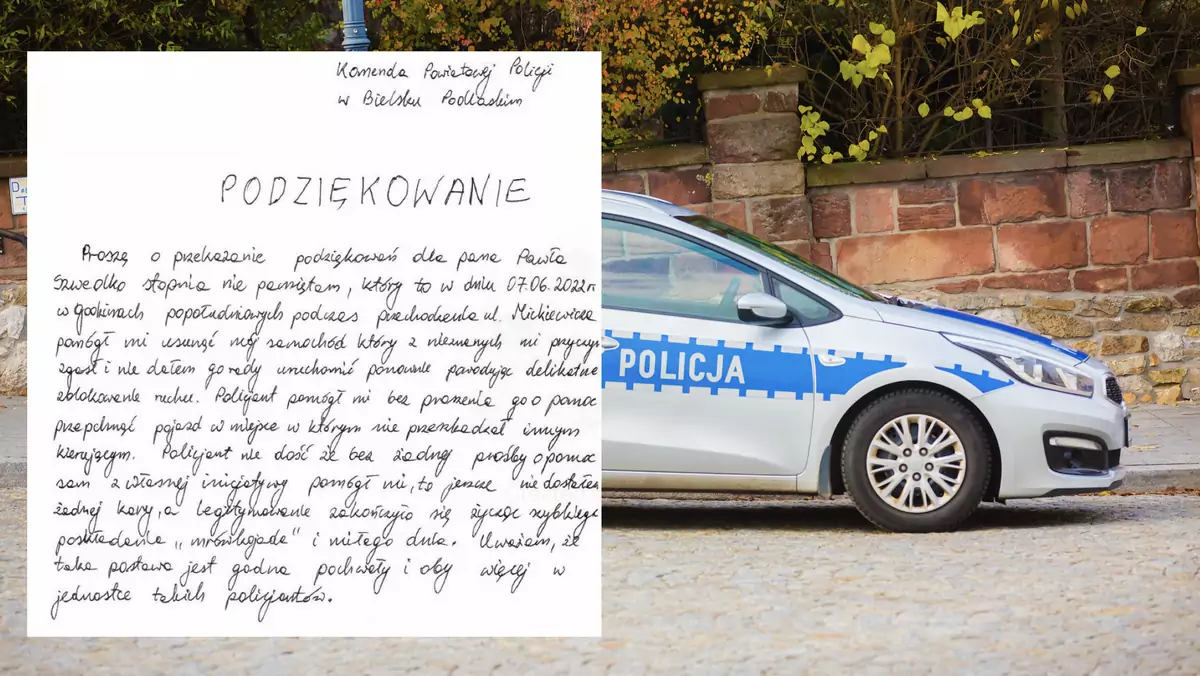 Komenda Powiatowej Policji
w Bielsku Podlaskim
PODZIĘKOWANIE
Proszę o przekazanie podziękowań dla pana Pawła
Szwedko stopnia nie pamiętam, który to w dniu 07.06.2022r
w godzinach popołudniowych podczas przechodzenia ul. Mickiewicza
pomógł mi usunąć mój samochód który z nieznanych mi przyczyn
zgasł i nie dałem go rady uruchomić ponownie powodując delikatne
zblokowanie ruchu. Policjant pomógł mi bez proszenia go o pomoc
przepchnąć pojazd w miejsce w którym nie przeszkadzał innym
kierującym. Policjant nie dość że bez żadnej prośby o pomoc
sam z własnej inicjatywy pomógł mi, to jeszcze nie dostałem
żadnej kary, a legitymowanie zakończyło się życząc szybkiego
poskładania „mrówkojada" i miłego dnia. Uważam, że
taka postawa jest godna pochwały i oby więcej w
jednostce takich policjantów.
POLICJA